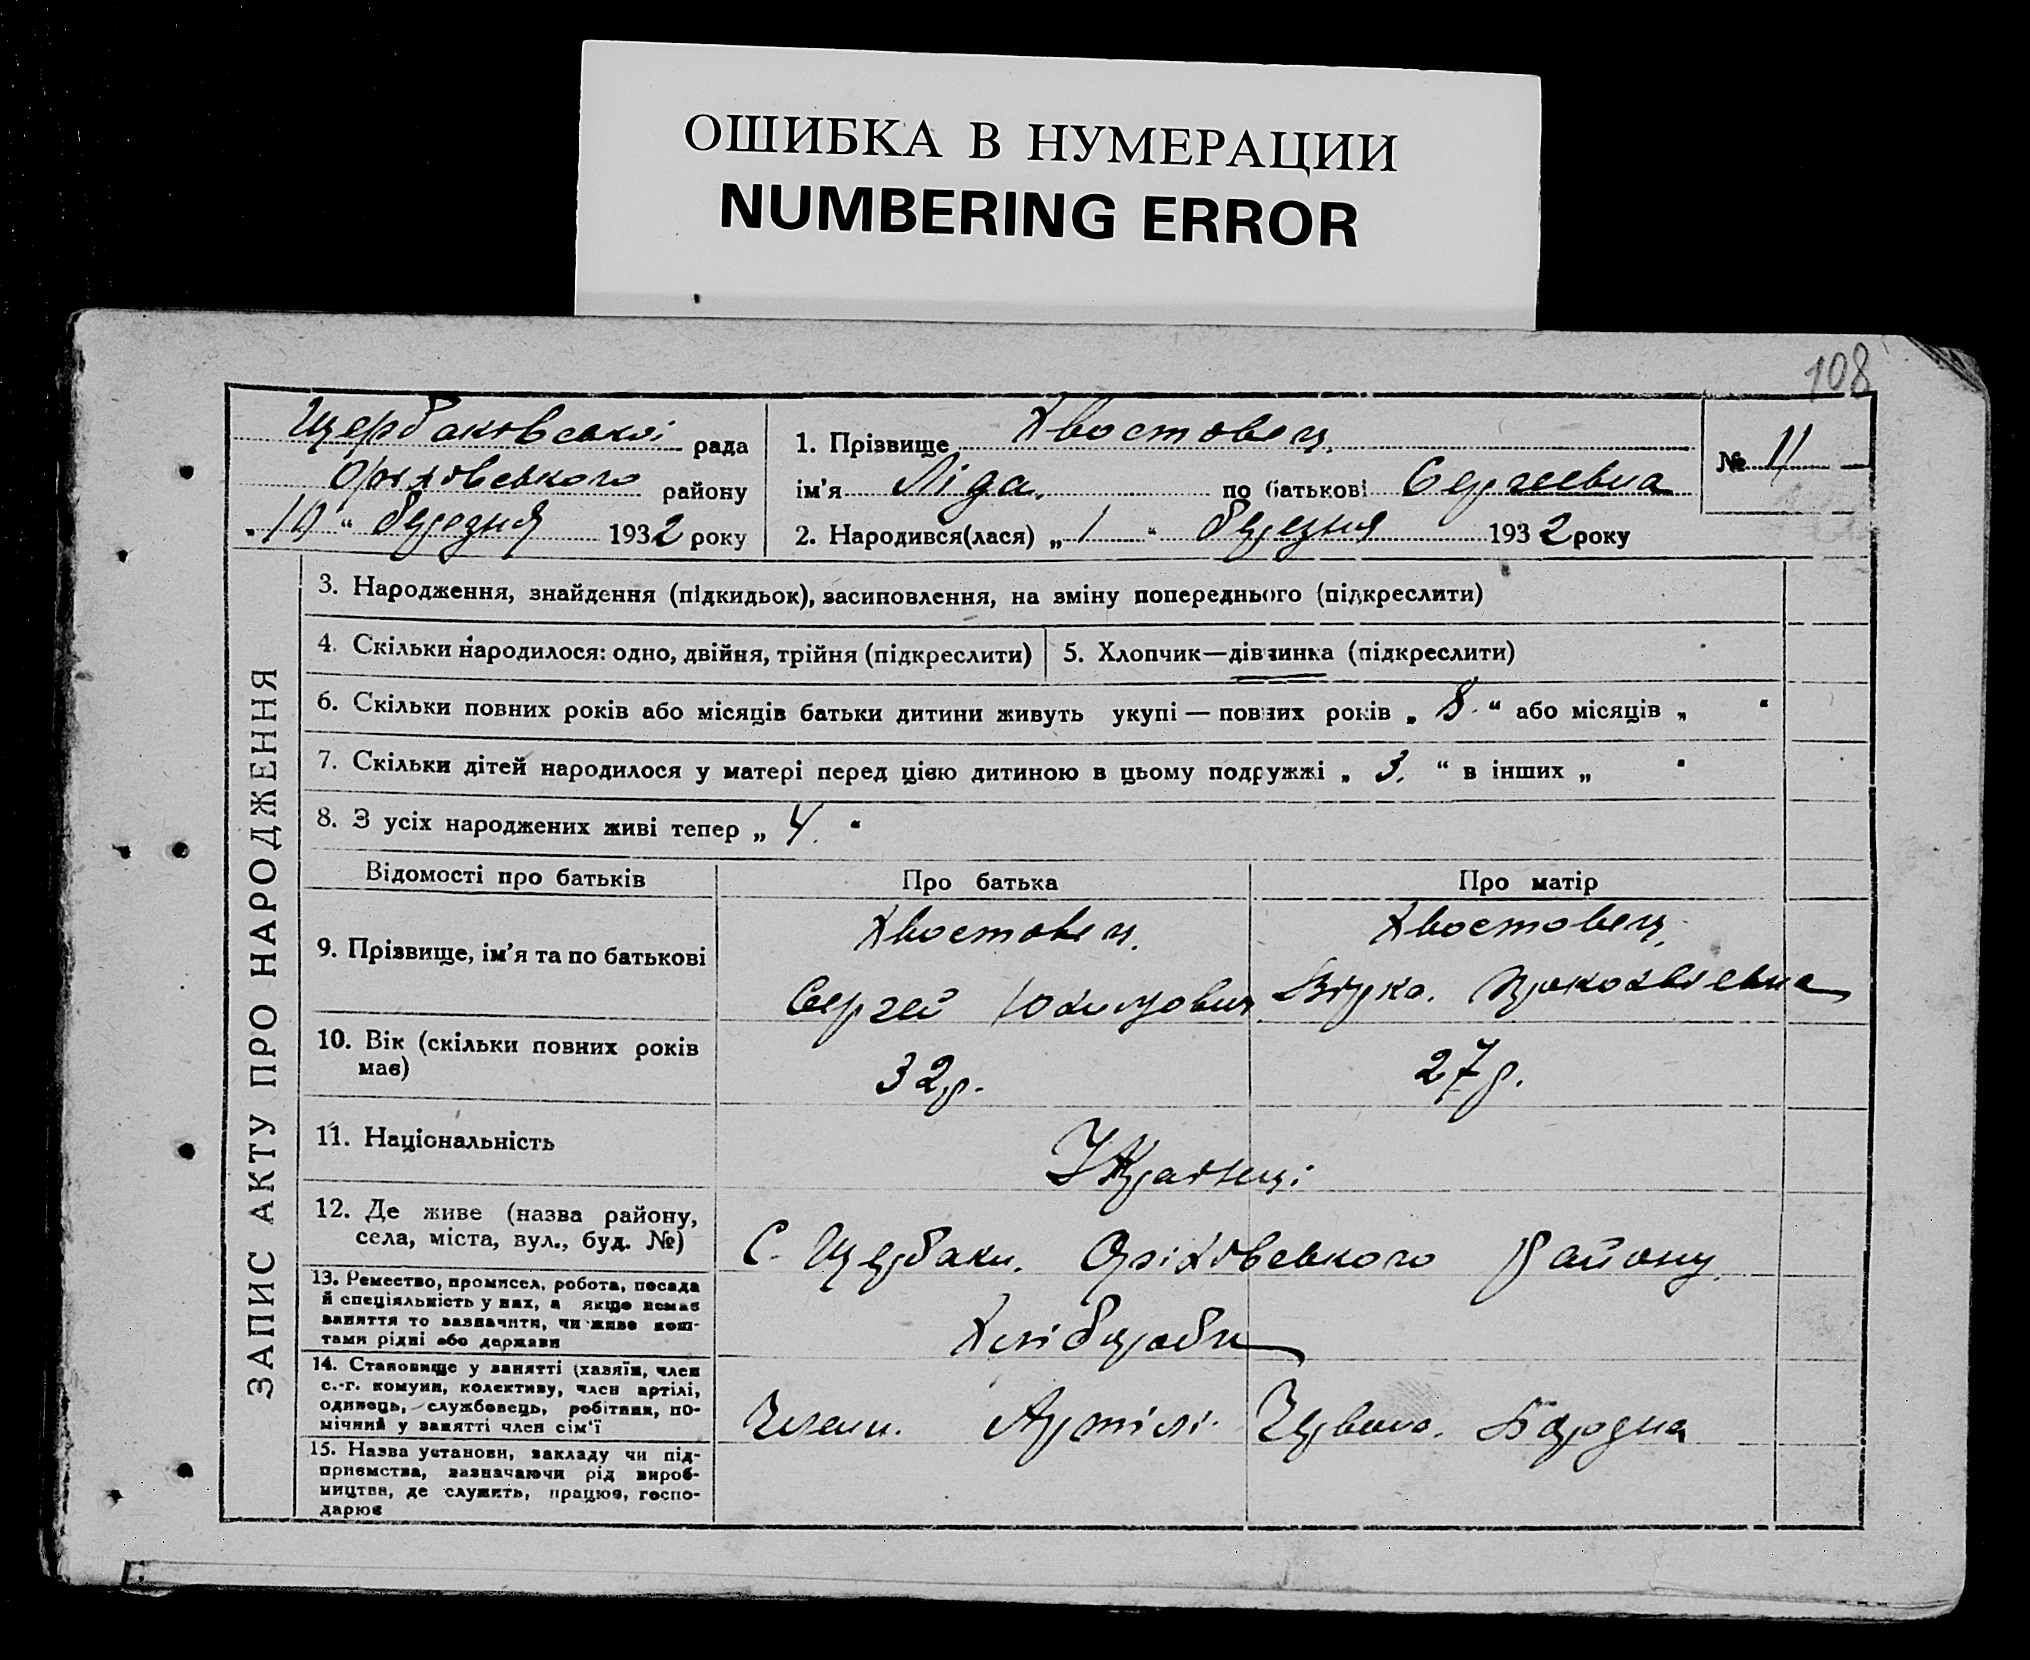 ОШИБКА В НУМЕРАЦИИ
NUMBERING ERROR
108
Щербаковської рада
Оріховського району
„10“ березня 1932 року
1. Прізвище Хвостовец
ім’я Ліда. по батькові Сергеевна
2. Народився(лася) „1“ березня 1932 року
№ 11
ЗАПИС АКТУ ПРО НАРОДЖЕННЯ
3. Народження, знайдення (підкидьок), засиновлення, на зміну попереднього (підкреслити)
4. Скільки народилося: одно, двійня, трійня (підкреслити)
5. Хлопчик—дівчинка (підкреслити)
6. Скільки повних років або місяців батьки дитини живуть укупі — повних років „8.“ або місяців „ “
7. Скільки дітей народилося у матері перед цією дитиною в цьому подружжі „3.“ в інших „ “
8. З усіх народжених живі тепер „4.“
Відомості про батьків
Про батька
Про матір
9. Прізвище, ім’я та по батькові
Хвостовец.
Сергей
Хвостовец.
10. Вік (скільки повних років
має)
32р.
27р.
11. Національність
Українці
12. Де живе (назва району,
села, міста, вул., буд. №)
С. Щербаки. Оріховського Району.
13. Ремество, промисел, робота, посада
й спеціяльність у них, а якщо немає
заняття то зазначити, чи живе кош-
тами рідні або держави
Хлібороби
14. Становище у занятті (хазяїн, член
с.-г. комуни, колективу, член артілі,
одинець, службовець, робітник, по-
мічний у занятті член сім’ї
Члени. Артілі. Червона.
15. Назва установи, закладу чи під-
приємства, зазначаючи рід вироб-
ництва, де служить, працює, госпо-
дарює